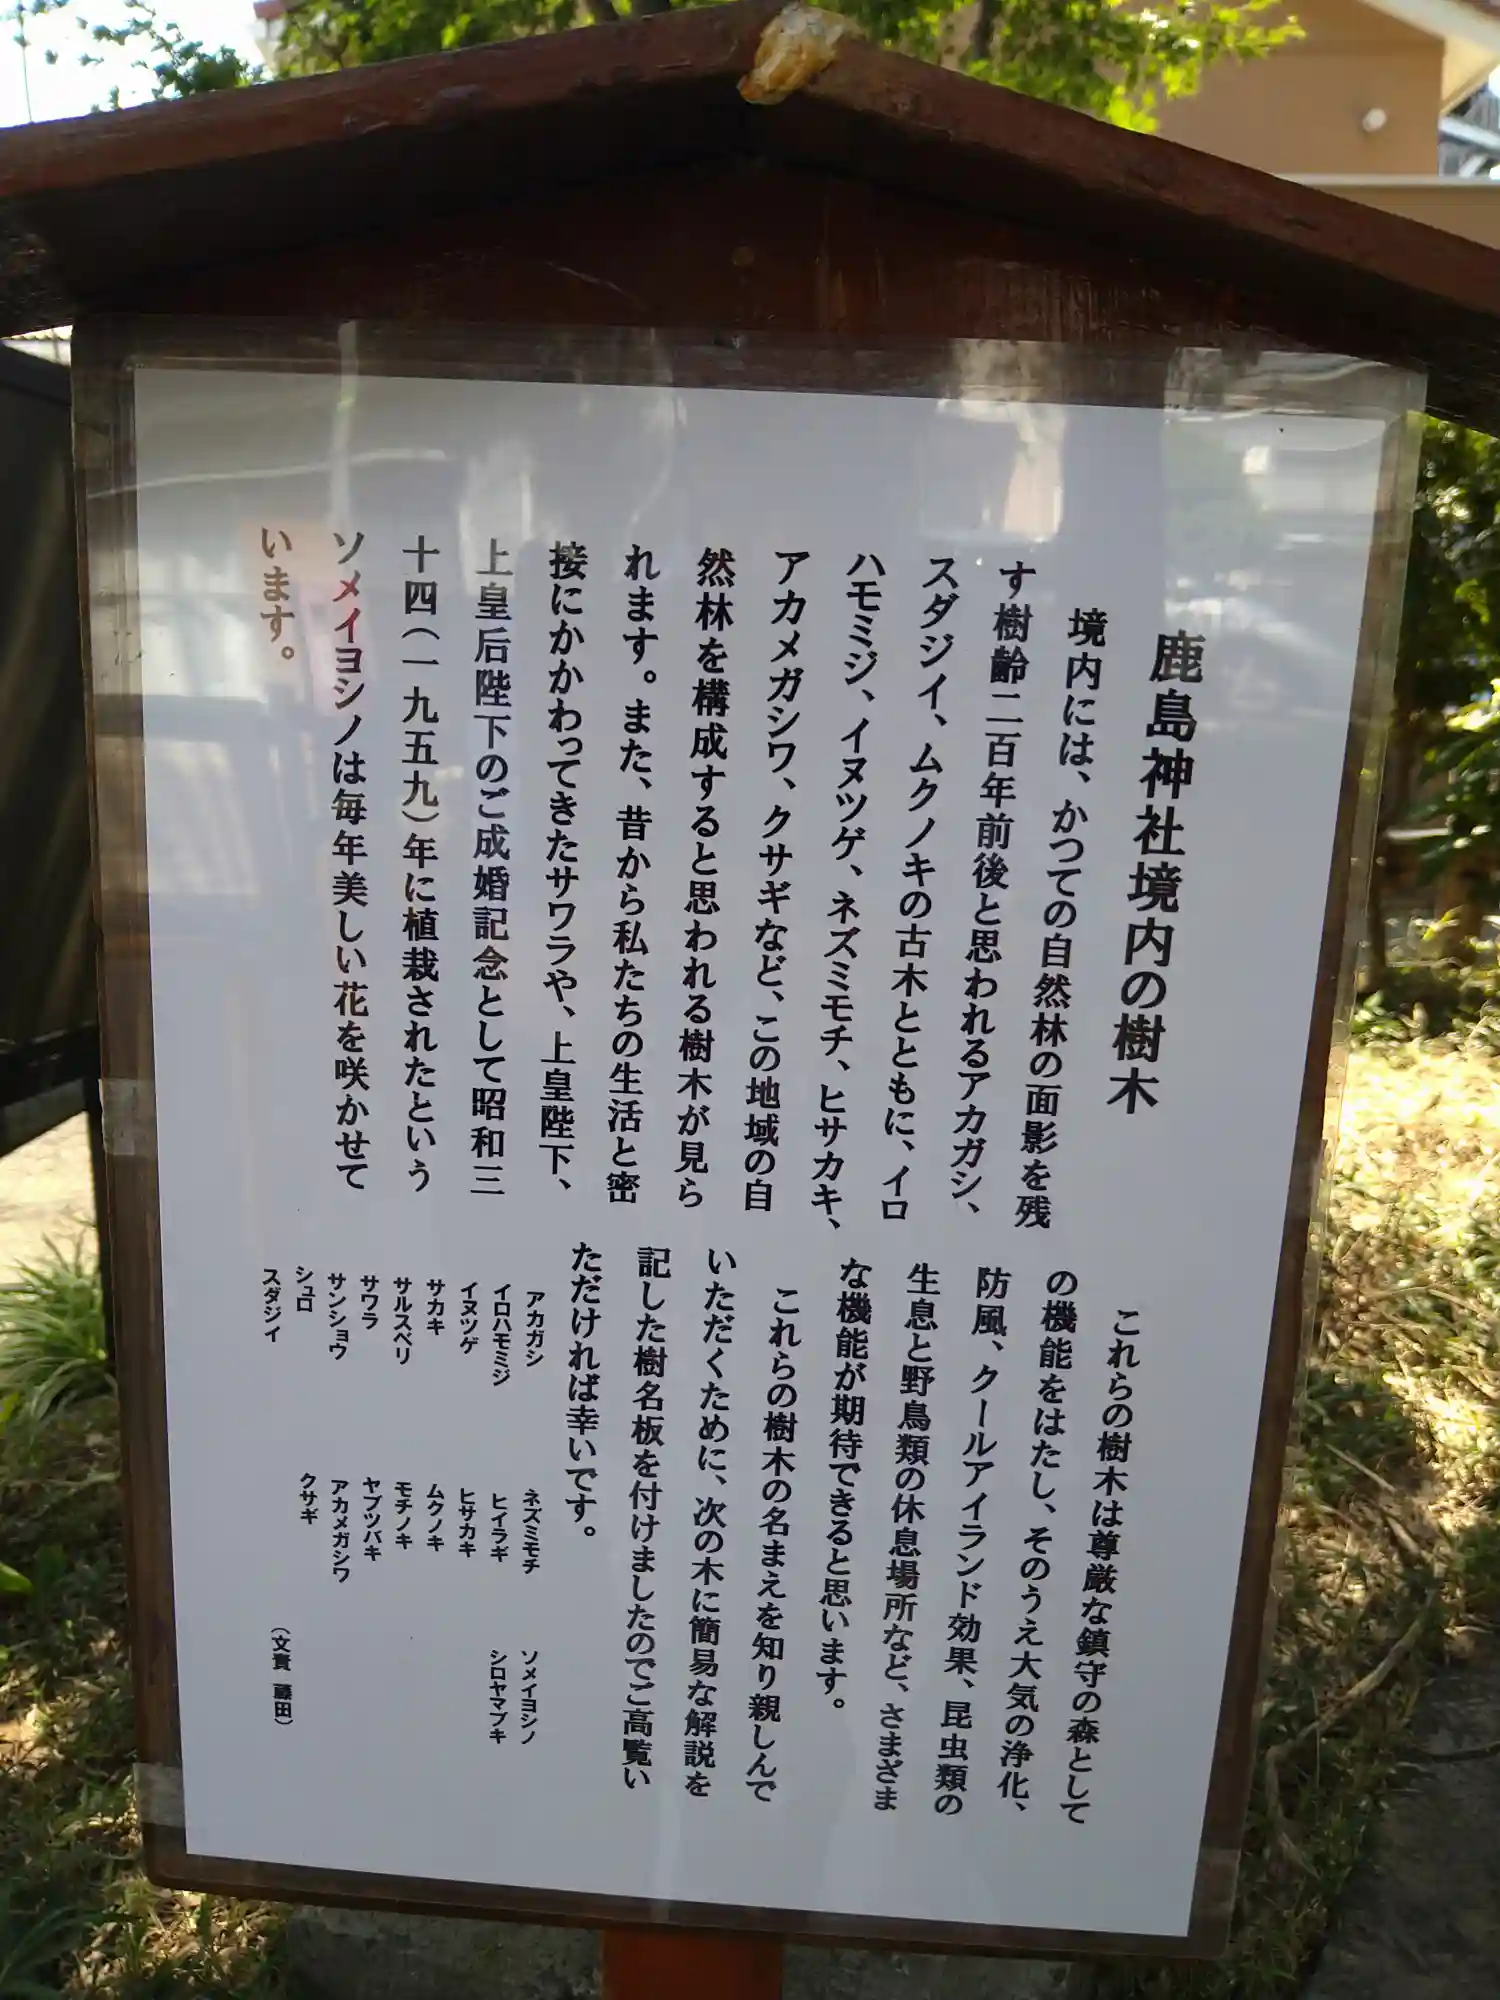 鹿島神社境内の樹木
境内には、かつての自然林の面影を残
す樹齢二百年前後と思われるアカガシ、
スダジイ、ムクノキの古木とともに、イロ
ハモミジ、イヌツゲ、ネズミモチ、ヒサカキ、
アカメガシワ、クサギなど、この地域の自
然林を構成すると思われる樹木が見ら
れます。また、昔から私たちの生活と密
接にかかわってきたサワラや、上皇陛下、
上皇后陛下のご成婚記念として昭和三
十四(一九五九)年に植栽されたという
ソメイヨシノは毎年美しい花を咲かせて
います。
これらの樹木は尊厳な鎮守の森として
の機能をはたし、そのうえ大気の浄化、
防風、クールアイランド効果、昆虫類の
生息と野鳥類の休息場所など、さまざま
な機能が期待できると思います。
これらの樹木の名まえを知り親しんで
いただくために、次の木に簡易な解説を
記した樹名板を付けましたのでご高覧い
ただければ幸いです。
アカガシ
イロハモミジ
イヌツゲ
サカキ
サルスベリ
サワラ
サンショウ
シュロ
スダジイ
ネズミモチ
ヒイラギ
ヒサカキ
ムクノキ
モチノキ
ヤブツバキ
アカメガシワ
クサギ
ソメイヨシノ
シロヤマブキ
(文責 藤田)